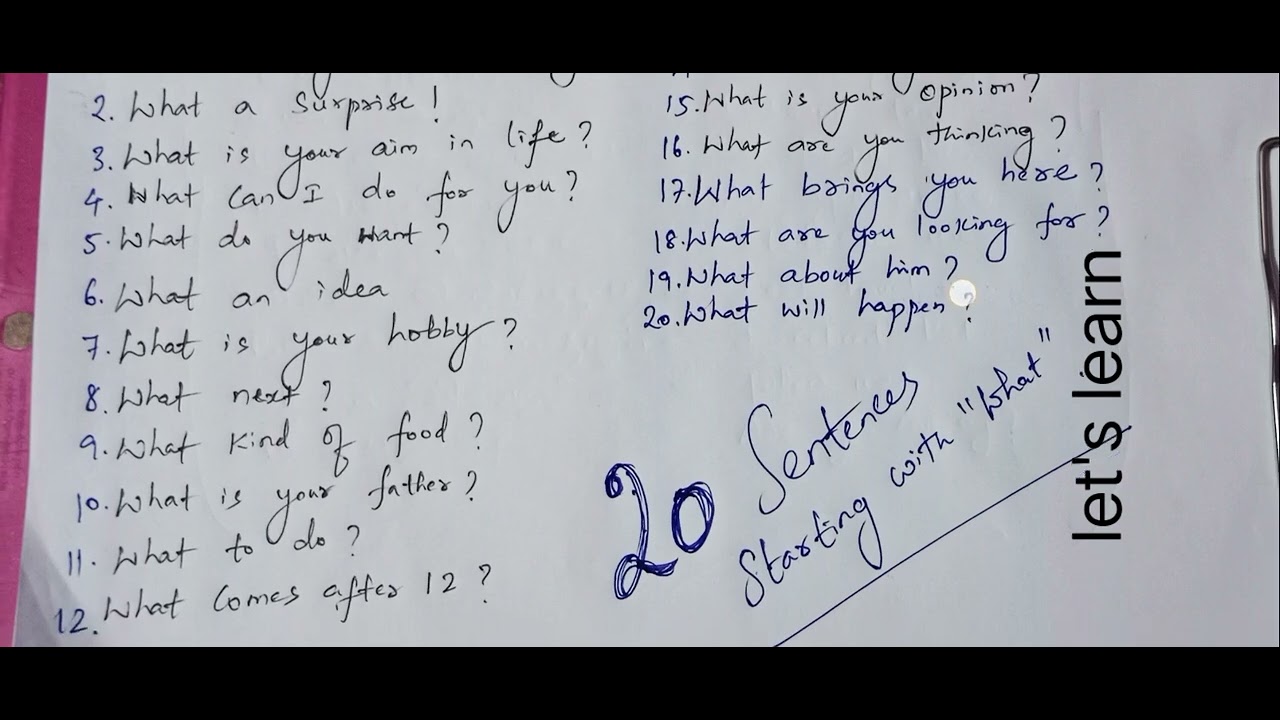 2. What a surprise!
3. What is your aim in life?
4. What can I do for you?
5. What do you want?
6. What an idea
7. What is your hobby?
8. What next?
9. What kind of food?
10. What is your father?
11. What to do?
12. What comes after 12?
15. What is your opinion?
16. What are you thinking?
17. What brings you here?
18. What are you looking for?
19. What about him?
20. What will happen?
20 Sentences
Starting with "What"
let's learn